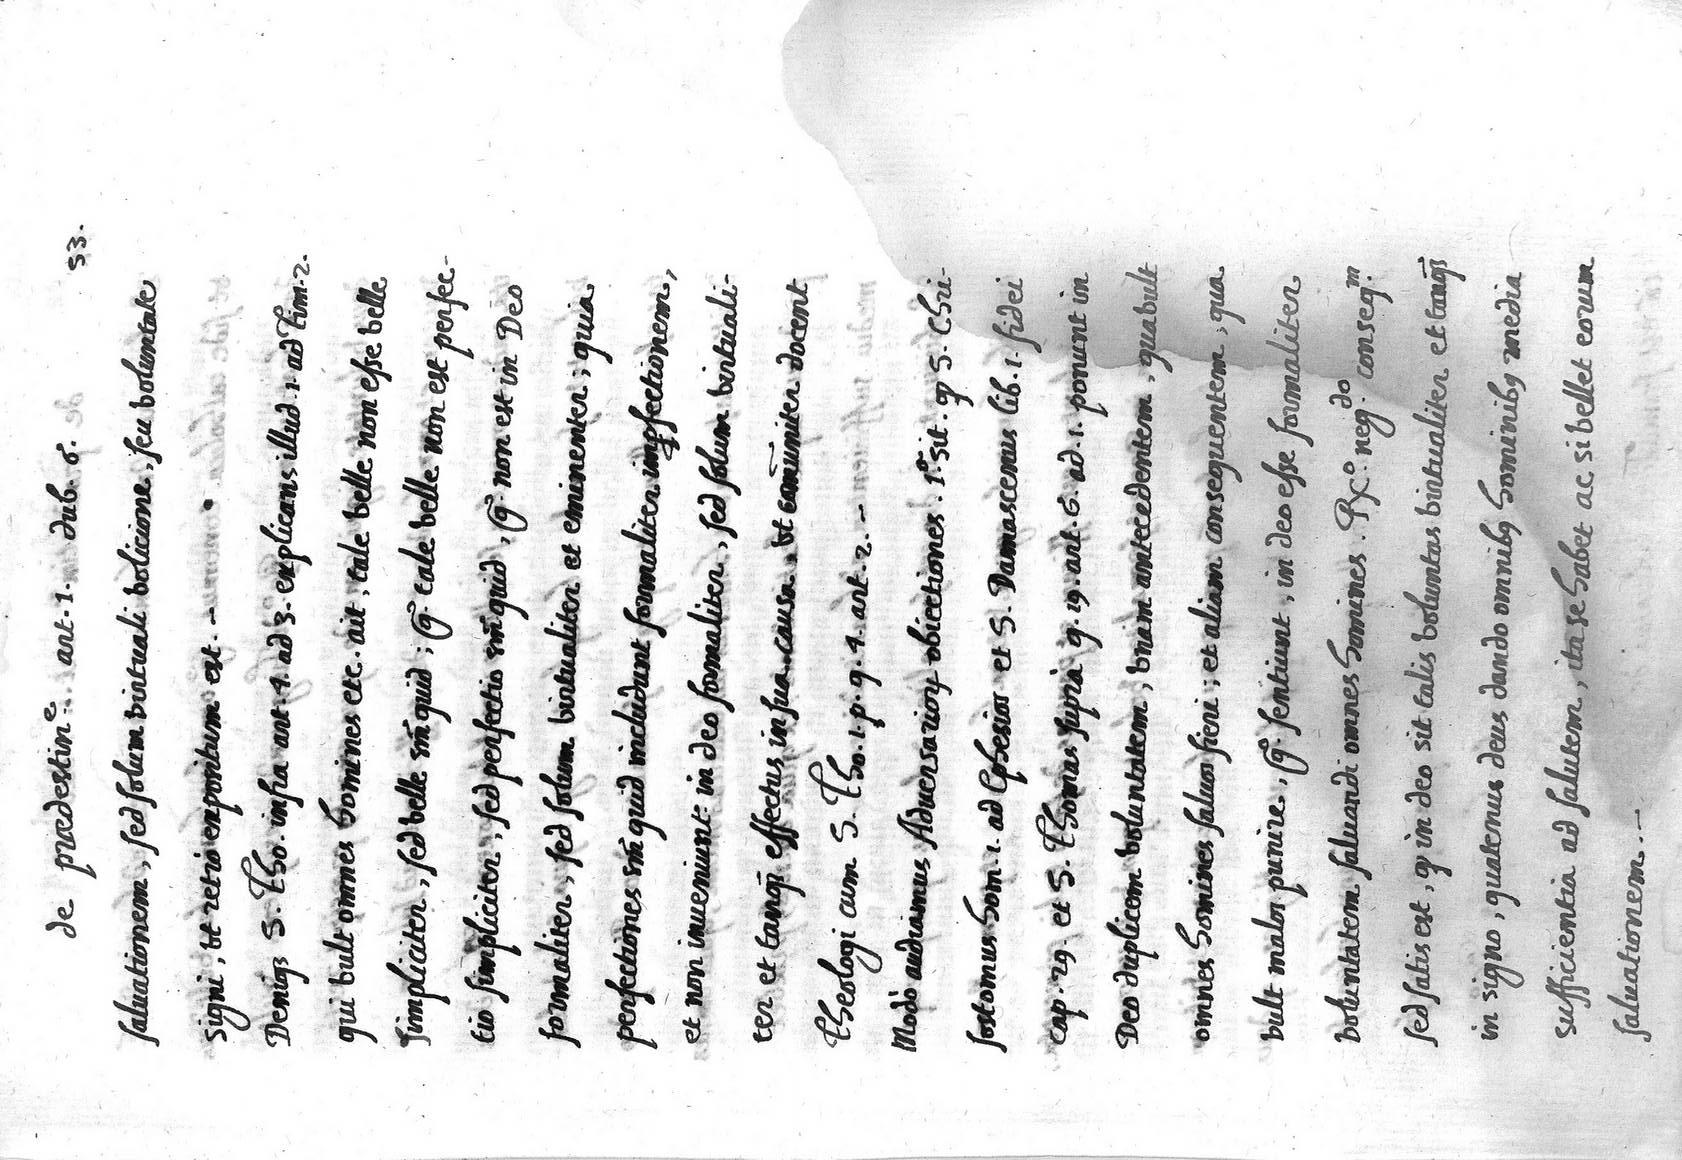 de prædestinᵉ. art. 1. dub. 6. 53.
saluationem, sed solum virtuali volicione, seu voluntate
signi, vt retro expositum est. –
Deniqз S. Tho. infra art. 4. ad 3. explicans illud. 1. ad Tim. 2.
qui vult omnes homines etc. ait, tale velle non esse velle
simpliciter, sed velle sm̄ quid; g̊. tale velle non est perfec-
tio simpliciter, sed perfectio sm̄ quid, g̊. non est in Deo
formaliter, sed solum virtualiter et eminenter; quia
perfectiones sm̄ quid includunt formaliter imperfectionem,
et non inueniunt in deo formaliter, sed solum virtuali-
ter et tanqз effectus in sua causa, vt com̄uniter docent
Theologi cum S. Tho. 1. p. q. 4. art. 2. –
Modo audiamus Aduersarioꝝ obiectiones. 1ᵃ. sit. qꝫ S. Chri-
sostomus hom. 1. ad Ephesios et S. Damascenus lib. 1. fidei
cap. 29. et S. Thomas supra q. 19. art. 6. ad. 1. ponunt in
Deo duplicem voluntatem, vnam antecedentem, qua vult
omnes homines saluos fieri; et aliam consequentem, qua
vult malos punire, g̊. sentiunt, in deo esse formaliter
voluntatem saluandi omnes homines. Rx̊. neg.ᵈᵒ conseq.ᵐ
sed satis est, q̨ in deo sit talis voluntas virtualiter et tanqз
in signo, quatenus deus dando omnibꝫ hominibꝫ media
sufficientia ad salutem, ita se habet ac si vellet eorum
saluationem. –